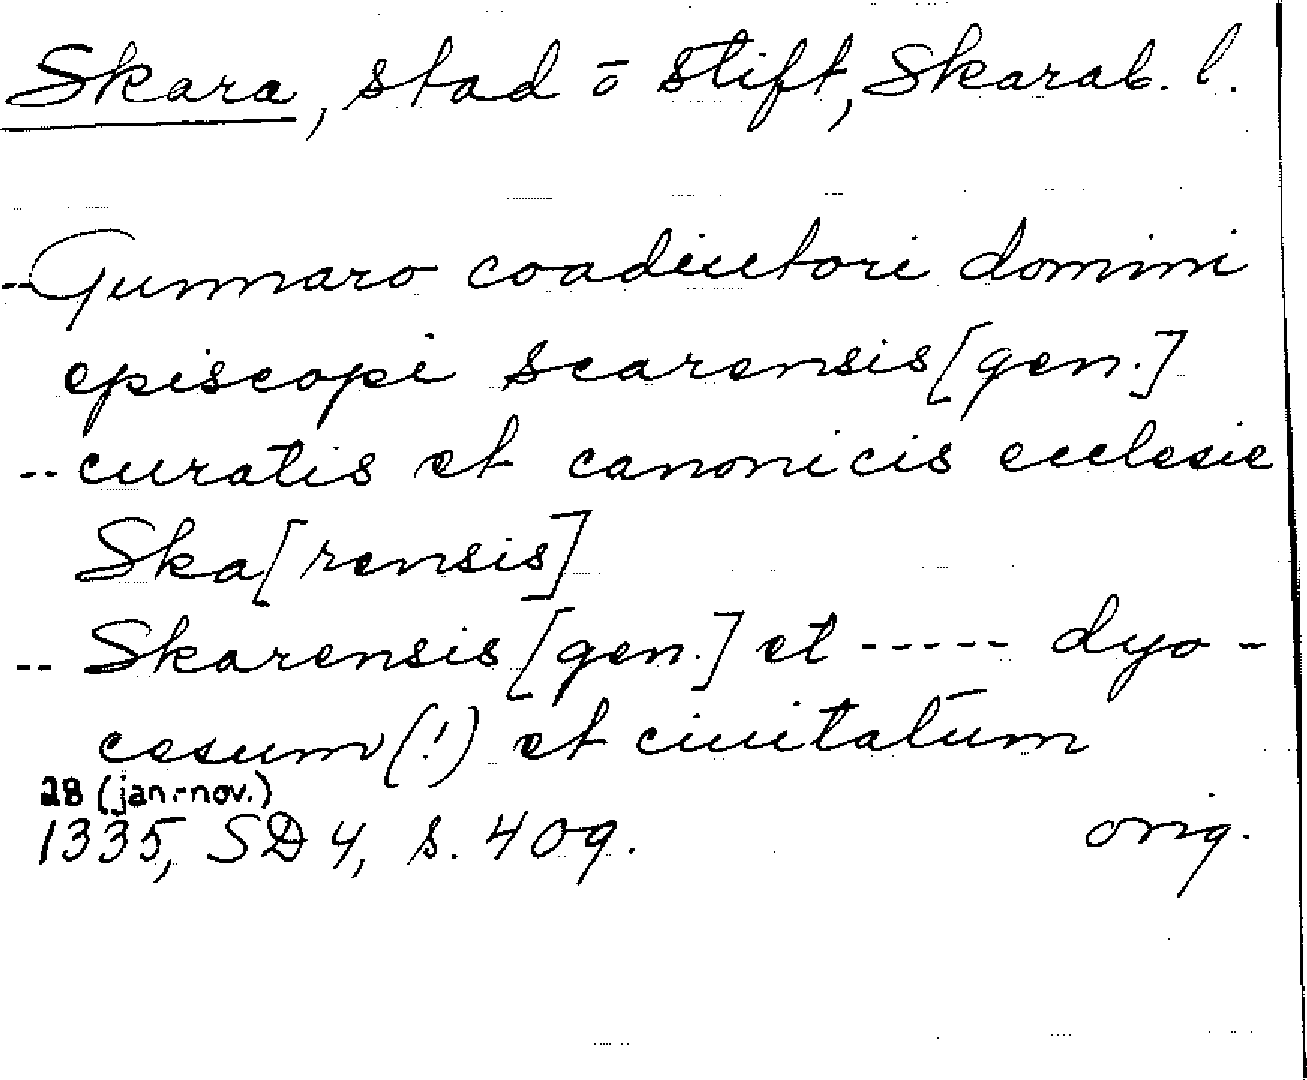 Skara, stad ō stift, Skarab. l.
--Gunnaro coadiutori domini
episcopi scarensis [gen.]
-- curatis et canonicis ecclesie
Ska[rensis]
-- Skarensis [gen.] et ----- dyo-
cesum (!) et ciuitatum
28 (jan.-nov.)
1335, SD 4, s. 409. orig.